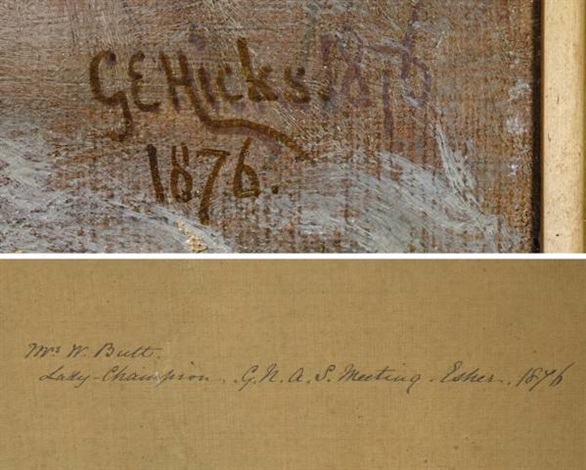 GEHicks. 1876
1876.
Mrs W. Butt.
Lady-Champion. G.N.A.S. Meeting. Esher. 1876